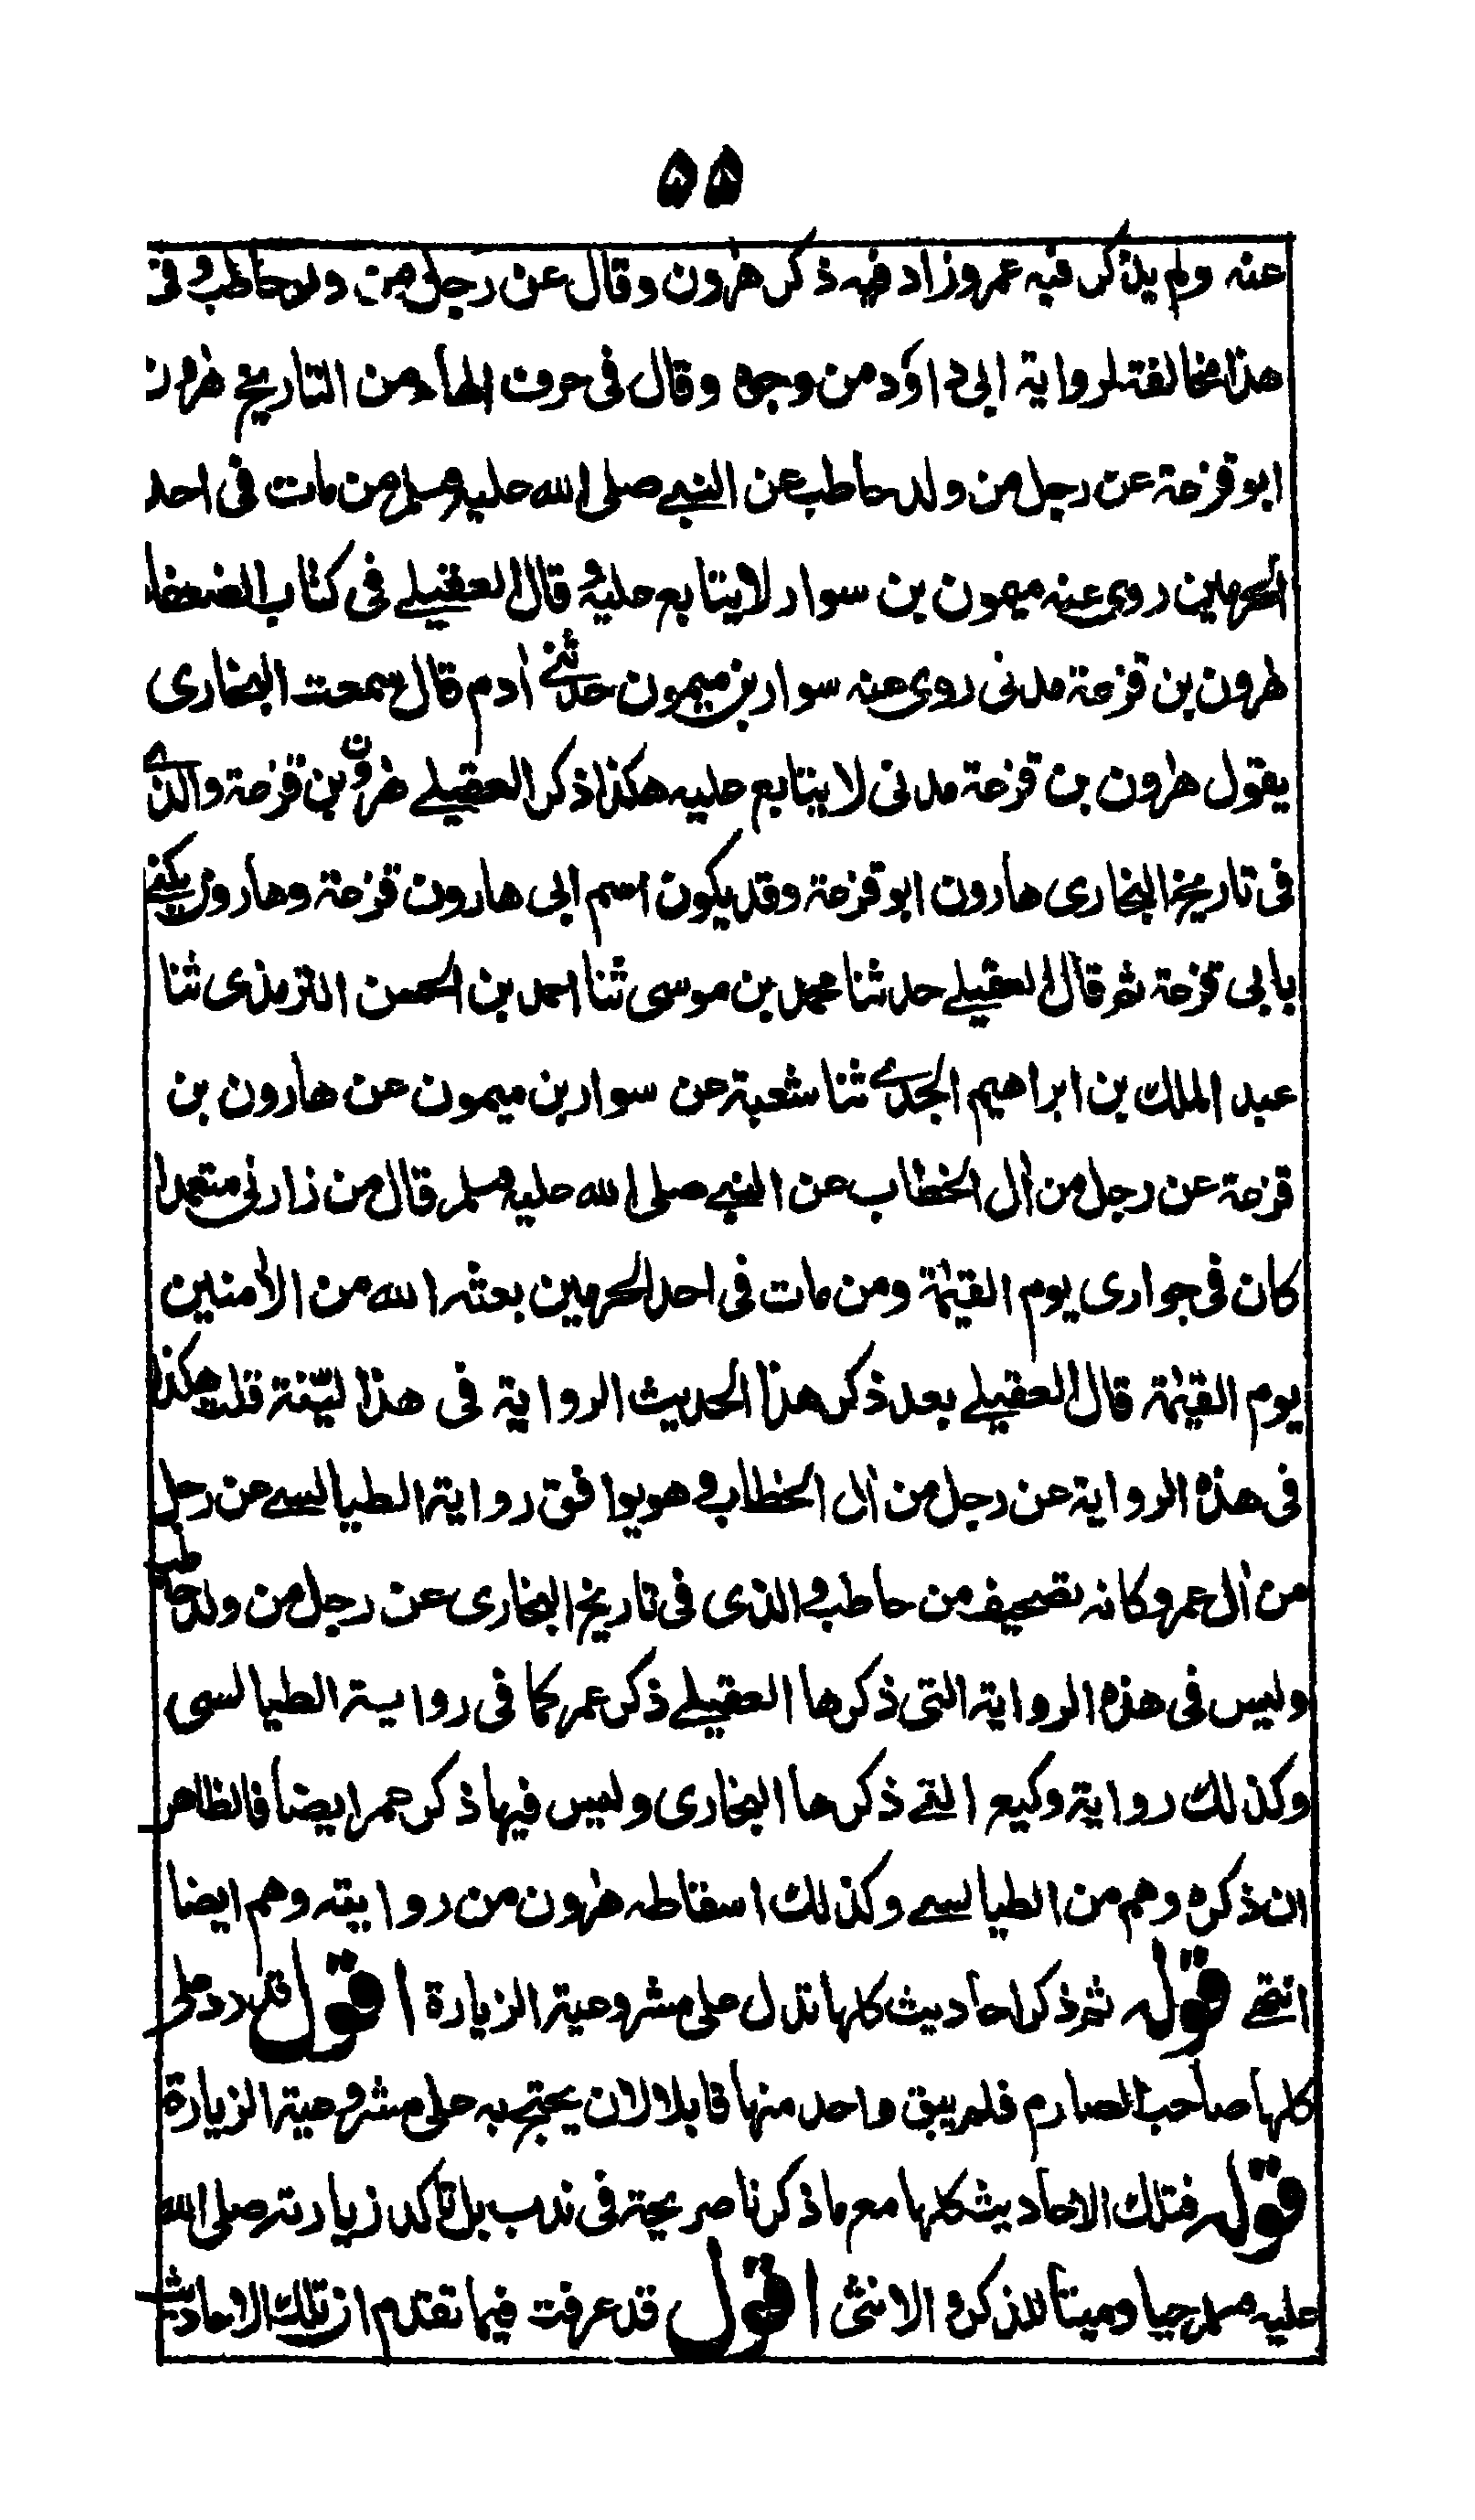 ٥٥
عنه ولم يذكر فيه عمر وزاد فيه ذكر هٰرون وقال عن رجل من ولد حاطب و فى
هذا مخالفته لرواية ابى داؤد من وجوه وقال فى حرف الهاء من التاريخ هٰرون
ابو قزعة عن رجل من ولد حاطب عن النبى صلى الله عليه وسلم من مات فى احد
الحرمين روى عنه ميمون بن سوار لا يتابع عليه و قال العقيلى فى كتاب الضعفا
هٰرون بن قزعة مدنى روى عنه سوار بن ميمون حدثنى اٰدم قال سمعت البخارى
يقول هٰرون بن قزعة مدنى لا يتابع عليه هكذا ذكر العقيلى هٰرون بن قزعة والذى
فى تاريخ البخارى هارون ابو قزعة وقد يكون اسم ابى هارون قزعة وهارون يكنى
بابى قزعة ثم قال العقيلى حدثنا محمد بن موسى ثنا احمد بن الحسن الترمذى ثنا
عبد الملك بن ابراهيم الجدى ثنا شعبة عن سوار بن ميمون عن هارون بن
قزعة عن رجل من اٰل الخطاب عن النبى صلى الله عليه وسلم قال من زارنى متعمدا
كان فى جوارى يوم القيٰمة ومن مات فى احد الحرمين بعثه الله من الاٰمنين
يوم القيٰمة قال العقيلى بعد ذكر هذا الحديث الرواية فى هذا لينة قلت هكذا
فى هذه الرواية عن رجل من اٰل الخطاب و هو يوافق رواية الطيالسى عن رجل
من اٰل عمر وكانه تصحيف من حاطب و الذى فى تاريخ البخارى عن رجل من ولد حاطب
وليس فى هذه الرواية التى ذكرها العقيلى ذكر عمر كما فى رواية الطيالسى
وكذلك رواية وكيع التى ذكرها البخارى وليس فيها ذكر عمر ايضا فالظاهر
ان ذكره وهم من الطيالسى وكذلك اسقاطه هٰرون من روايته وهم ايضا
انتهى قوله ثم ذكر احاديث كلها تدل على مشروعية الزيارة اقول قد رد على
كلها صاحب الصارم فلم يبق واحد منها قابلا لان يحتج به على مشروعية الزيارة
قوله فتلك الاحاديث كلها مع ما ذكرنا صريحة فى ندب بل تاكد زيارته صلى الله
عليه وسلم حيا وميتا للذكر و الانثى اقول قد عرفت فيما تقدم ان تلك الاحاديث